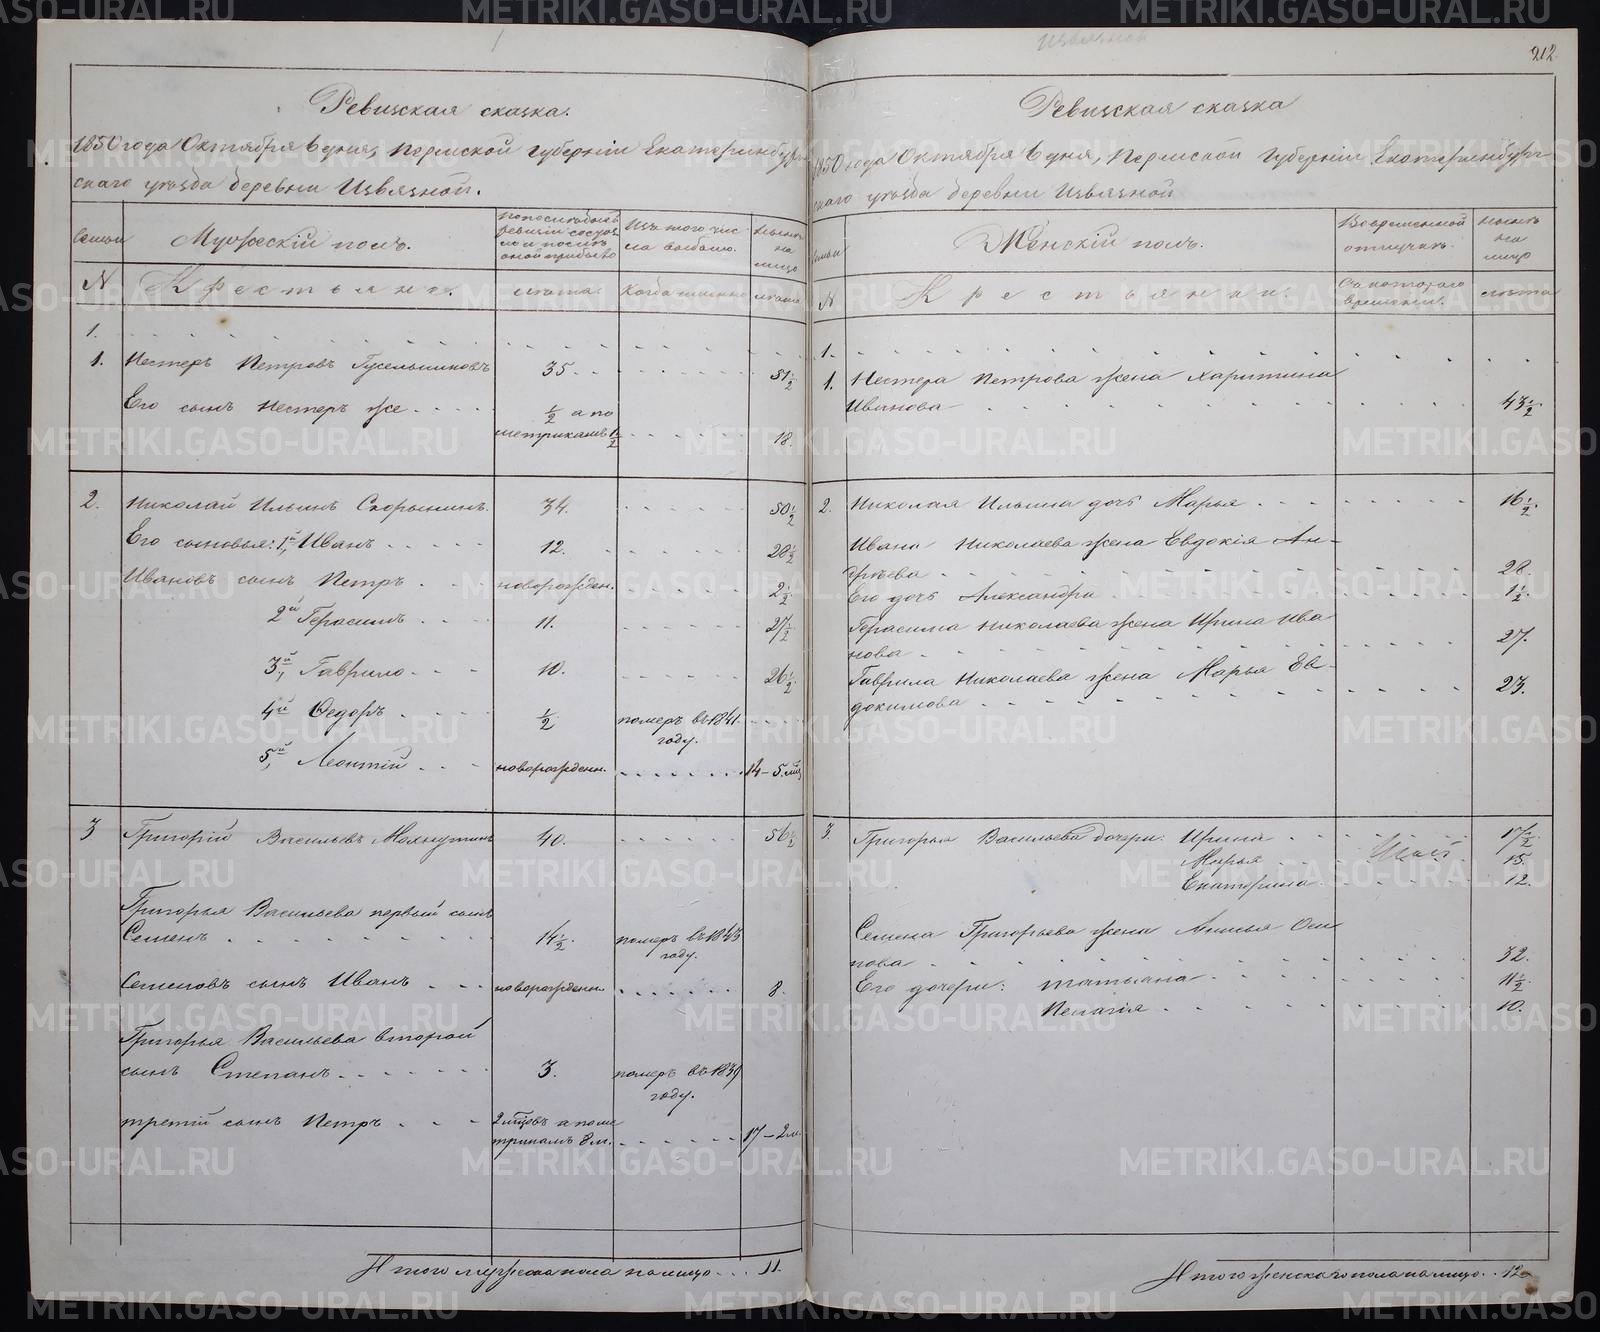 Извязной
212.
Ревизская сказка.
1850 года Октября 6 дня, Пермской Губерніи Екатеринбург-
скаго уѣзда деревни Извязной.
Семьи
Мужескій полъ.
По последней ревизіи состоя-
ло и послѣ оной прибыло
Изъ того чис-
ла выбыло.
Нынѣ на лицо
N
Крестьяне.
лѣта.
Когда именно
лѣта
1.
1. Нестеръ Петровъ Гусельниковъ 35. 51 ½
Его сынъ Нестеръ же ½ а по
метрикамъ 1 ½ 18.
2. Николай Ильинъ Скорынинъ. 34. 50 ½
Его сыновья: 1й, Иванъ 12. 28 ½
Ивановъ сынъ Петръ новорожден. 2 ½
2й Герасимъ 11. 27 ½
3й, Гаврило 10. 26 ½
4й Ѳедоръ ½ померъ въ 1841.
году.
5й, Леонтій новорожденн. 14 - 5. мц
3 Григорій Васильевъ 40. 56 ½
Григорья Васильева первый сынъ
Семенъ 14 ½ померъ въ 1843
году.
Семеновъ сынъ Иванъ новорожденн. 8.
Григорья Васильева второй
сынъ Степанъ 3. померъ въ 1839
году.
третій сынъ Петръ 2 мцовъ а по ме
трикамъ 8 м. 17 - 2 м.
Итого мужеска пола на лицо 11.
Ревизская сказка
1850 года Октября 6 дня, Пермской Губерніи Екатеринбург-
скаго уѣзда деревни Извязной
Семьи
Женскій полъ.
Во временной
отлучкѣ.
Нынѣ
на
лицо
N
Крестьянки.
Съ котораго
времени.
лѣта
1.
1. Нестера Петрова жена Харитина
Иванова 43 ½.
2. Николая Ильина дочь Марья 16 ½.
Ивана Николаева жена Евдокія Ан-
дрѣева 28
Его дочь Александра 1 ½.
Герасима Николаева жена Ирина Ива
нова 27.
Гаврила Николаева жена Марья Ев-
докимова 23.
3. Григорья Васильева дочери: Ирина 17 ½
Марья 15.
Екатерина 12.
Семена Григорьева жена Анисья Оси
пова 32.
Его дочери: Татьяна 11 ½
Пелагія 10.
Итого женскаго пола на лицо 12
METRIKI.GASO-URAL.RU